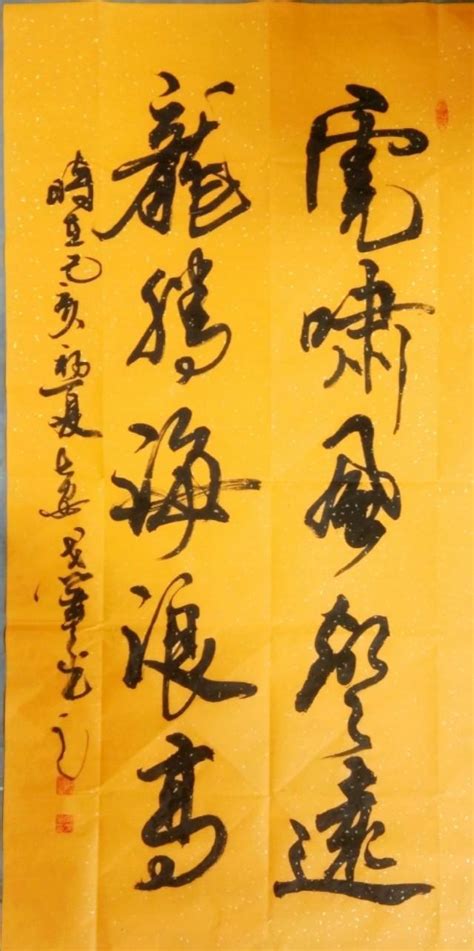 虎啸风声远
龙腾海浪高
時在己亥初夏